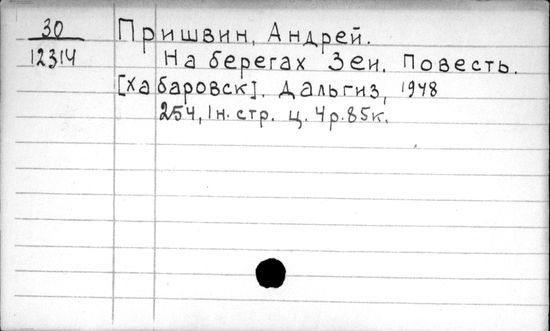 30
12314
Пришвин, Андрей.
На берегах Зеи. Повесть.
[Хабаровск]. Дальгиз, 1948
254, 1н. стр. ц. 4р. 85к.